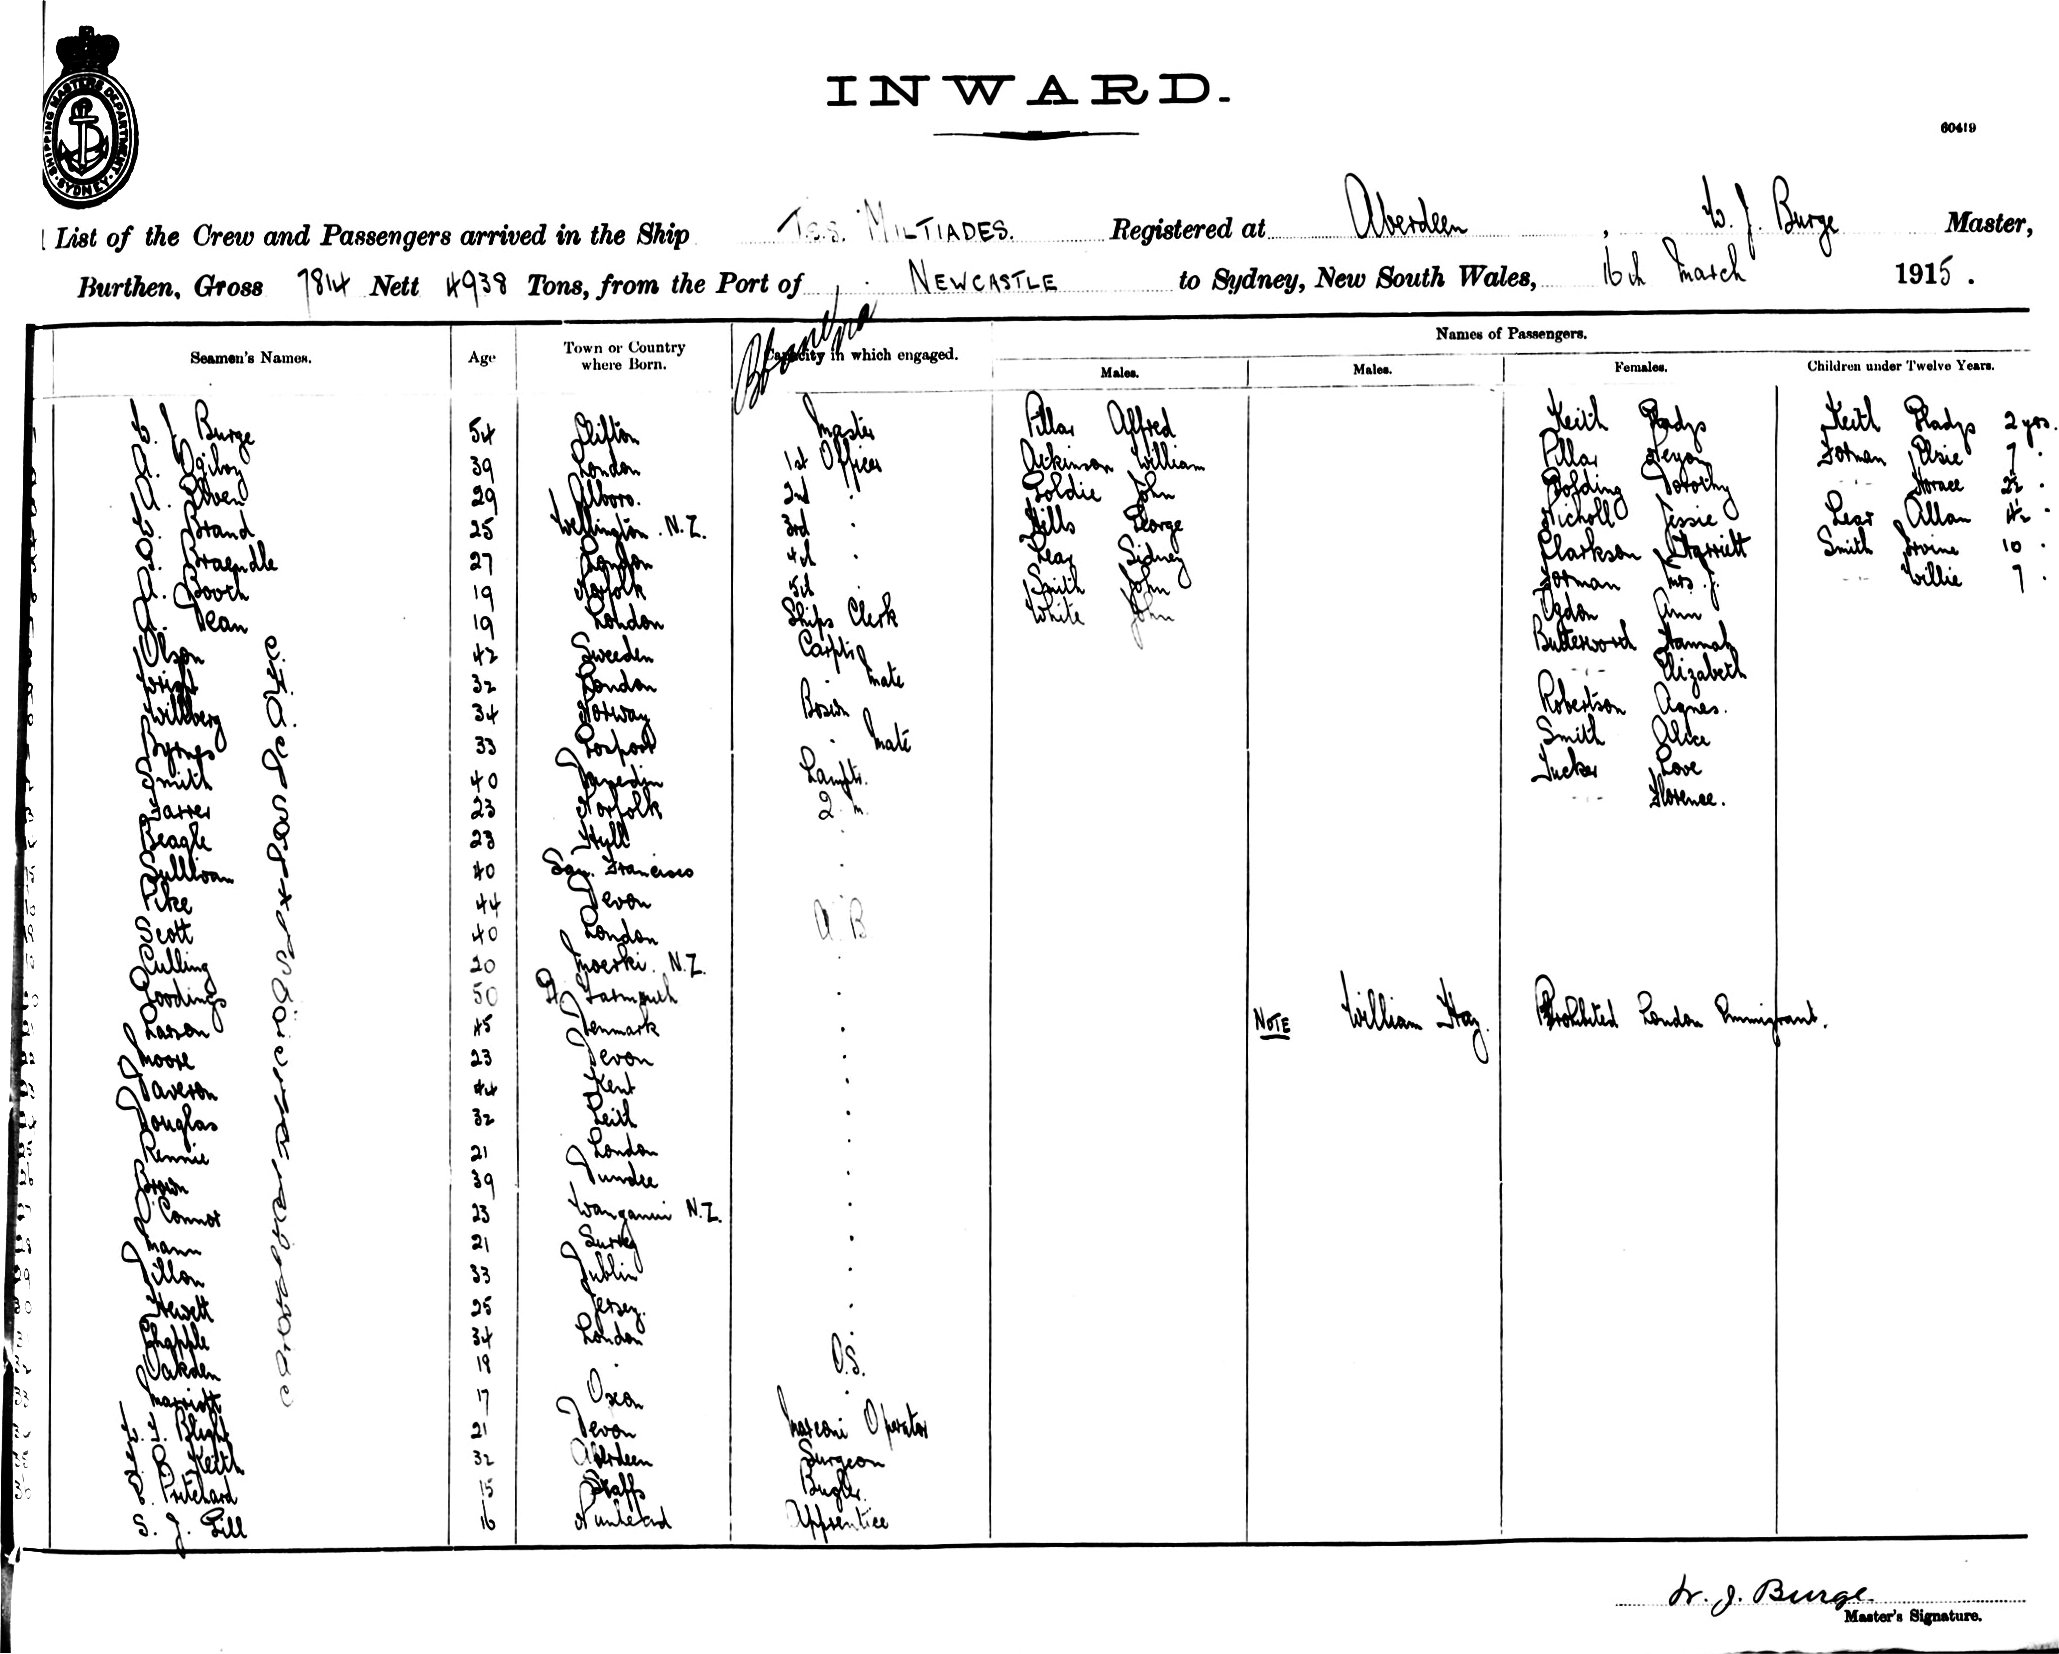 INWARD.
60419
SHIPPING MASTERS DEPARTMENT SYDNEY
List of the Crew and Passengers arrived in the Ship T.S.S. MILTIADES. Registered at Aberdeen, W. J. Burge Master,
Burthen, Gross 7814 Nett 4938 Tons, from the Port of NEWCASTLE to Sydney, New South Wales, 16th March 1915.
Names of Passengers.
Seamen's Names. Age Town or Country where Born. Capacity in which engaged. Males. Males. Females. Children under Twelve Years.
W. J Burge 54 Clifton Master Pillar Alfred Keith Gladys Keith Gladys 2 yrs.
Ogilvy 39 London 1st Officer Atkinson William Pillar Forman Elsie 7
29 2nd Goldie John Golding Dorothy Horace 2½
Brand 25 Wellington. N.Z. 3rd Hills George Nicholl Jessie Lear Allan
Braendle 27 London 4th Lear Sidney Clarkson Harriett Smith Irvine 10
Booth 19 Norfolk 5th Smith John Forman Mrs. J. Willie 7
Dean 19 London Ships Clerk White John Ogdon Ann
Olson 42 Sweden Carptr Butterworth Hannah
Wright 32 London Mate Elizabeth
Willberg 34 Norway Bosun Robertson Agnes.
Byrnes 33 Gosport Mate Smith Alice
Smith 40 Dunedin Lamptr. Tucker Love
Farrer 23 Norfolk 2. M. Florence.
Beagle 23 Hull
Sullivan 40 San. Francisco
Pike 44 Devon
Scott 40 London A B
Culling 20 Moerki. N.Z.
Goodings 50 Gt Yarmouth
Larson 45 Denmark NOTE William Hay. Prohibited London Immigrant.
Moore 23 Devon
Daveron 44 Kent
Douglas 32 Leith
Rennie 21 London
Brown 39 Dundee
O Connor 23 Wanganui N.Z.
Mann 21 Surrey
Dillon 33 Dublin
Hewett 25 Jersey.
Chapple 34 London
Oakden 18 O.S.
Marriott 17 Oxon
J Blight 21 Devon Marconi Operator
Keith 32 Aberdeen Surgeon
Pritchard 15 Staffs Bugler.
S. J. Gill 16 Nunhead Apprentice
W. J. Burge
Master's Signature.